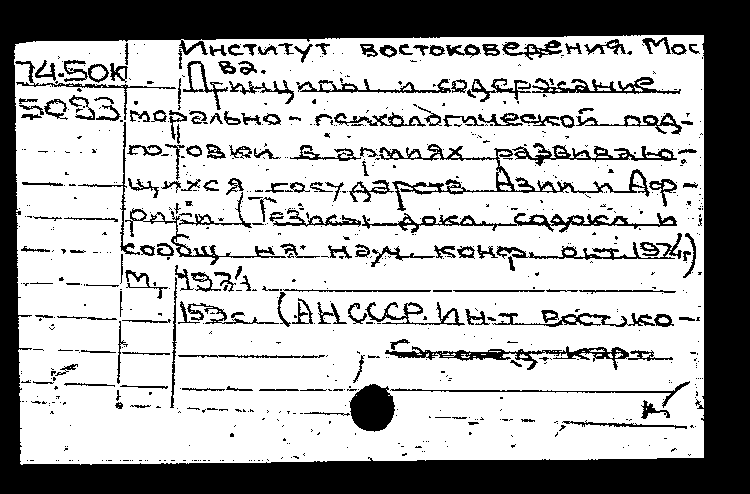 Институт востоковедения. Мос
ва.
74-50к Принципы и содержание
5083 морально-психологической под-
готовки в армиях развиваю-
щихся государств Азии и Аф-
рики. (Тезисы докл., содокл. и
сообщ. на науч. конф. окт. 1974г)
М., 1974.
153с. (АН СССР. Ин-т восто​ко-
См. след. карт.